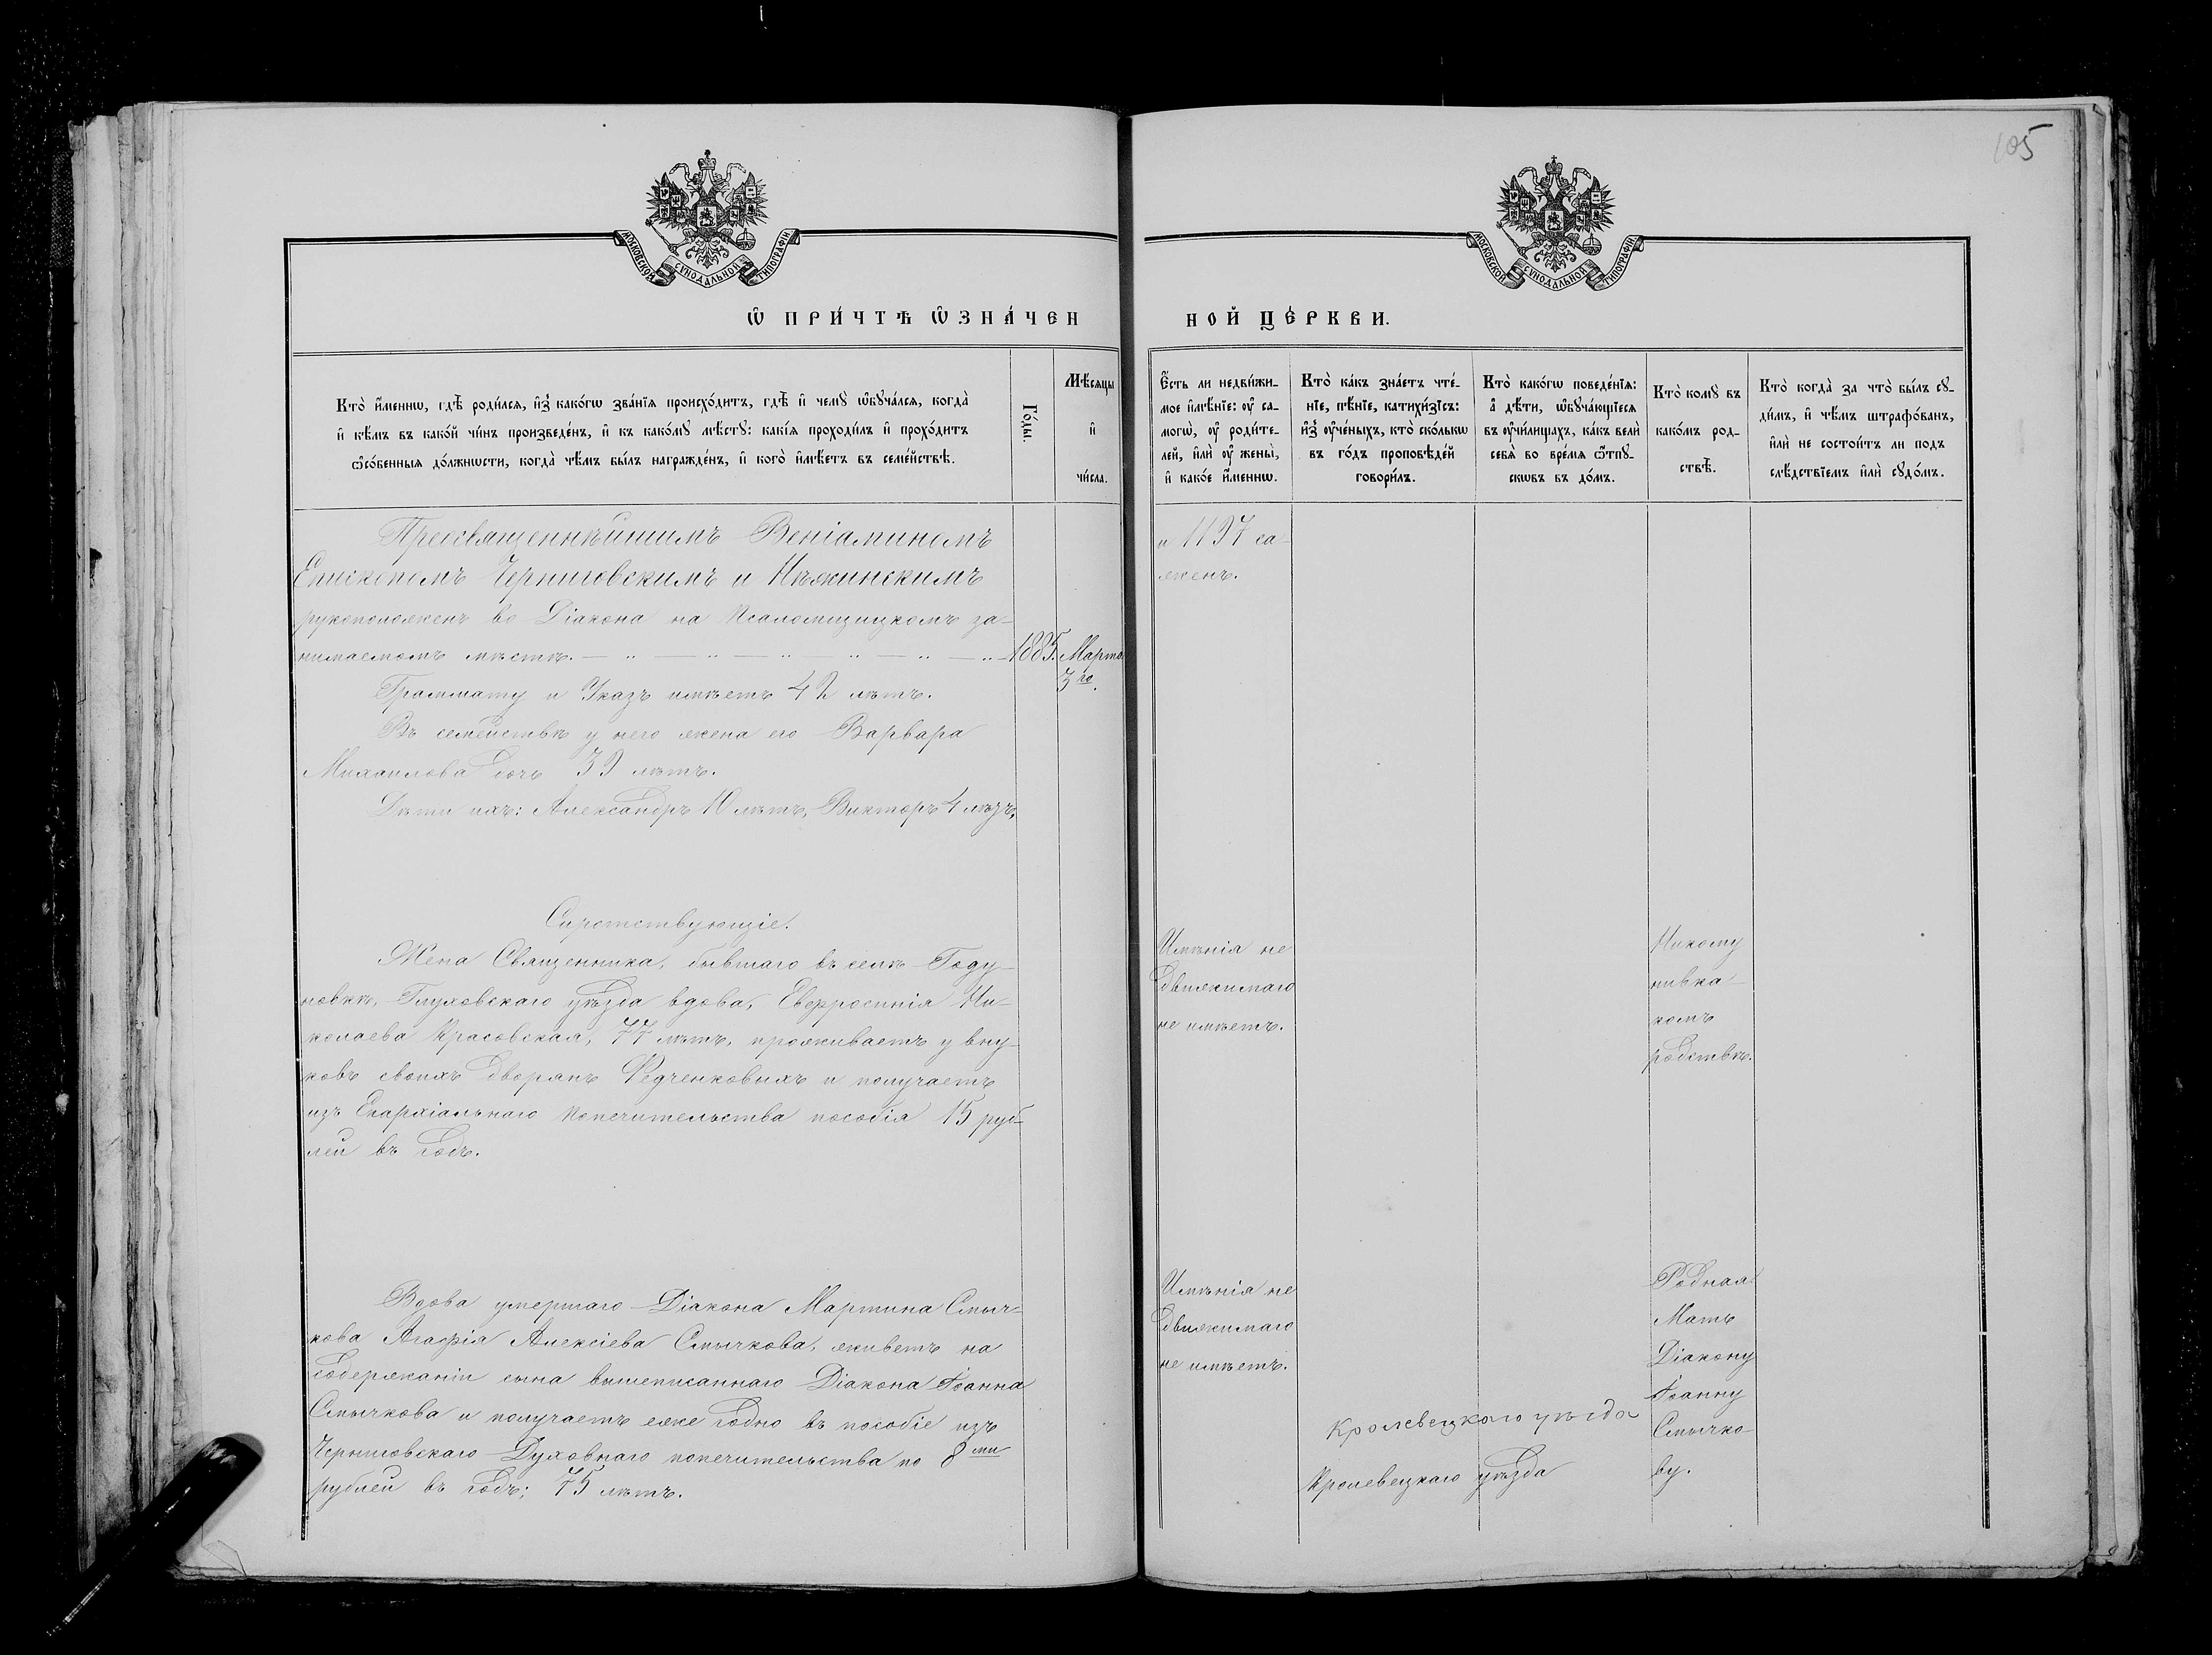 105
МОСКОВСКОЙ СѴНОДАЛЬНОЙ ТИПОГРАФІИ
МОСКОВСКОЙ СѴНОДАЛЬНОЙ ТИПОГРАФІИ
Ѡ҆ ПРИ́ЧТѢ Ѡ҆ЗНА́ЧЕН
НОЙ ЦЕ́РКВИ.
Кто̀ и҆́меннѡ, гдѣ̀ роди́лсѧ, и҆з̾ како́гѡ зва́нїѧ происхо́дитъ, гдѣ̀ и҆ чемꙋ̀ ѡ҆бꙋча́лсѧ, когда̀
и҆ кѣ́мъ въ како́й чи́нъ произведе́нъ, и҆ къ како́мꙋ мѣ́стꙋ: какі́ѧ проходи́лъ и҆ прохо́дитъ
ѻ҆со́бенныѧ до́лжнѡсти, когда̀ чѣ́мъ бы́лъ награжде́нъ, и҆ кого̀ и҆мѣ́етъ въ семе́йствѣ.
Го́ды.
Мѣ́сѧцы
и҆
чи́сла.
Є҆́сть ли недви́жи-
мое и҆мѣ́нїе: ᲂу҆ са-
могѡ̀, ᲂу҆ роди́те-
лей, и҆лѝ ᲂу҆ жены̀,
и҆ како́е и҆́меннѡ.
Кто̀ ка́къ зна́етъ чте́-
нїе, пѣ́нїе, катихи́зїсъ:
и҆з̾ ᲂу҆че́ныхъ, кто̀ ско́лькѡ
въ го́дъ проповѣ́дей
говори́лъ.
Кто̀ како́гѡ поведе́нїѧ:
а҆ дѣ́ти, ѡ҆бꙋча́ющїесѧ
въ ᲂу҆чи́лищахъ, ка́къ велѝ
себѧ̀ во вре́мѧ ѿпꙋ-
скѡвъ въ до́мъ.
Кто̀ комꙋ̀ въ
како́мъ род-
ствѣ̀.
Кто̀ когда̀ за что̀ бы́лъ сꙋ-
ди́мъ, и҆ чѣ́мъ штрафо́ванъ,
и҆лѝ не состои́тъ ли подъ
слѣ́дствїемъ и҆лѝ сꙋдо́мъ.
Преосвященнѣйшимъ Веніаминомъ
Епископомъ Черниговскимъ и Нѣжинскимъ
рукоположенъ во Діакона на псаломщицкомъ за-
нимаемомъ мѣстѣ. — " — " — " — " — " — " 1885. Марта
3го.
Граммату и Указъ имѣетъ 42 лѣтъ.
Въ семействѣ у него жена его Варвара
Михаилова дочь 39 лѣтъ.
Дѣти ихъ: Александръ 10 лѣтъ, Викторъ 4 лѣтъ,
и 1197 са-
женъ.
Сиротствующіе.
Жена Священника, бывшаго въ селѣ Году-
новкѣ, Глуховскаго уѣзда вдова, Евфросинія Ни-
колаева Красовская, 77 лѣтъ, проживаетъ у вну-
ковъ своихъ дворянъ Федченковыхъ и получаетъ
изъ Епархіальнаго попечительства пособія 15 руб-
лей въ годъ.
Имѣнія не
движимаго
не имѣетъ.
Никому
нивка-
комъ
родствѣ.
Вдова умершаго Діакона Мартина Смыч-
кова Агафія Алексіева Смычкова, живетъ на
содержаніи сына вышеписаннаго Діакона Іоанна
Смычкова и получаетъ еже годно въ пособіе изъ
Черниговскаго Духовнаго попечительства по 8ми
рублей въ годъ; 75 лѣтъ.
Имѣнія не
движимаго
не имѣетъ.
Родная
Мать
Діакону
Іоанну
Смычко-
ву.
Кролевецкого уѣзда
Кролевецкаго уѣзда